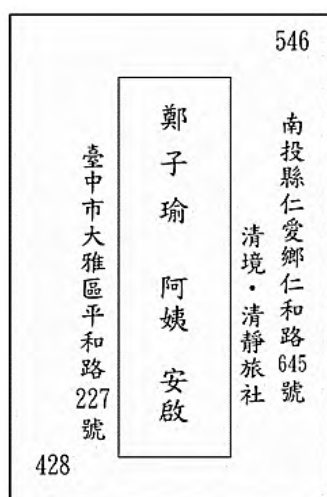 546
南投縣仁愛鄉仁和路645號
清境·清靜旅社
鄭子瑜 阿姨 安啟
臺中市大雅區平和路227號
428